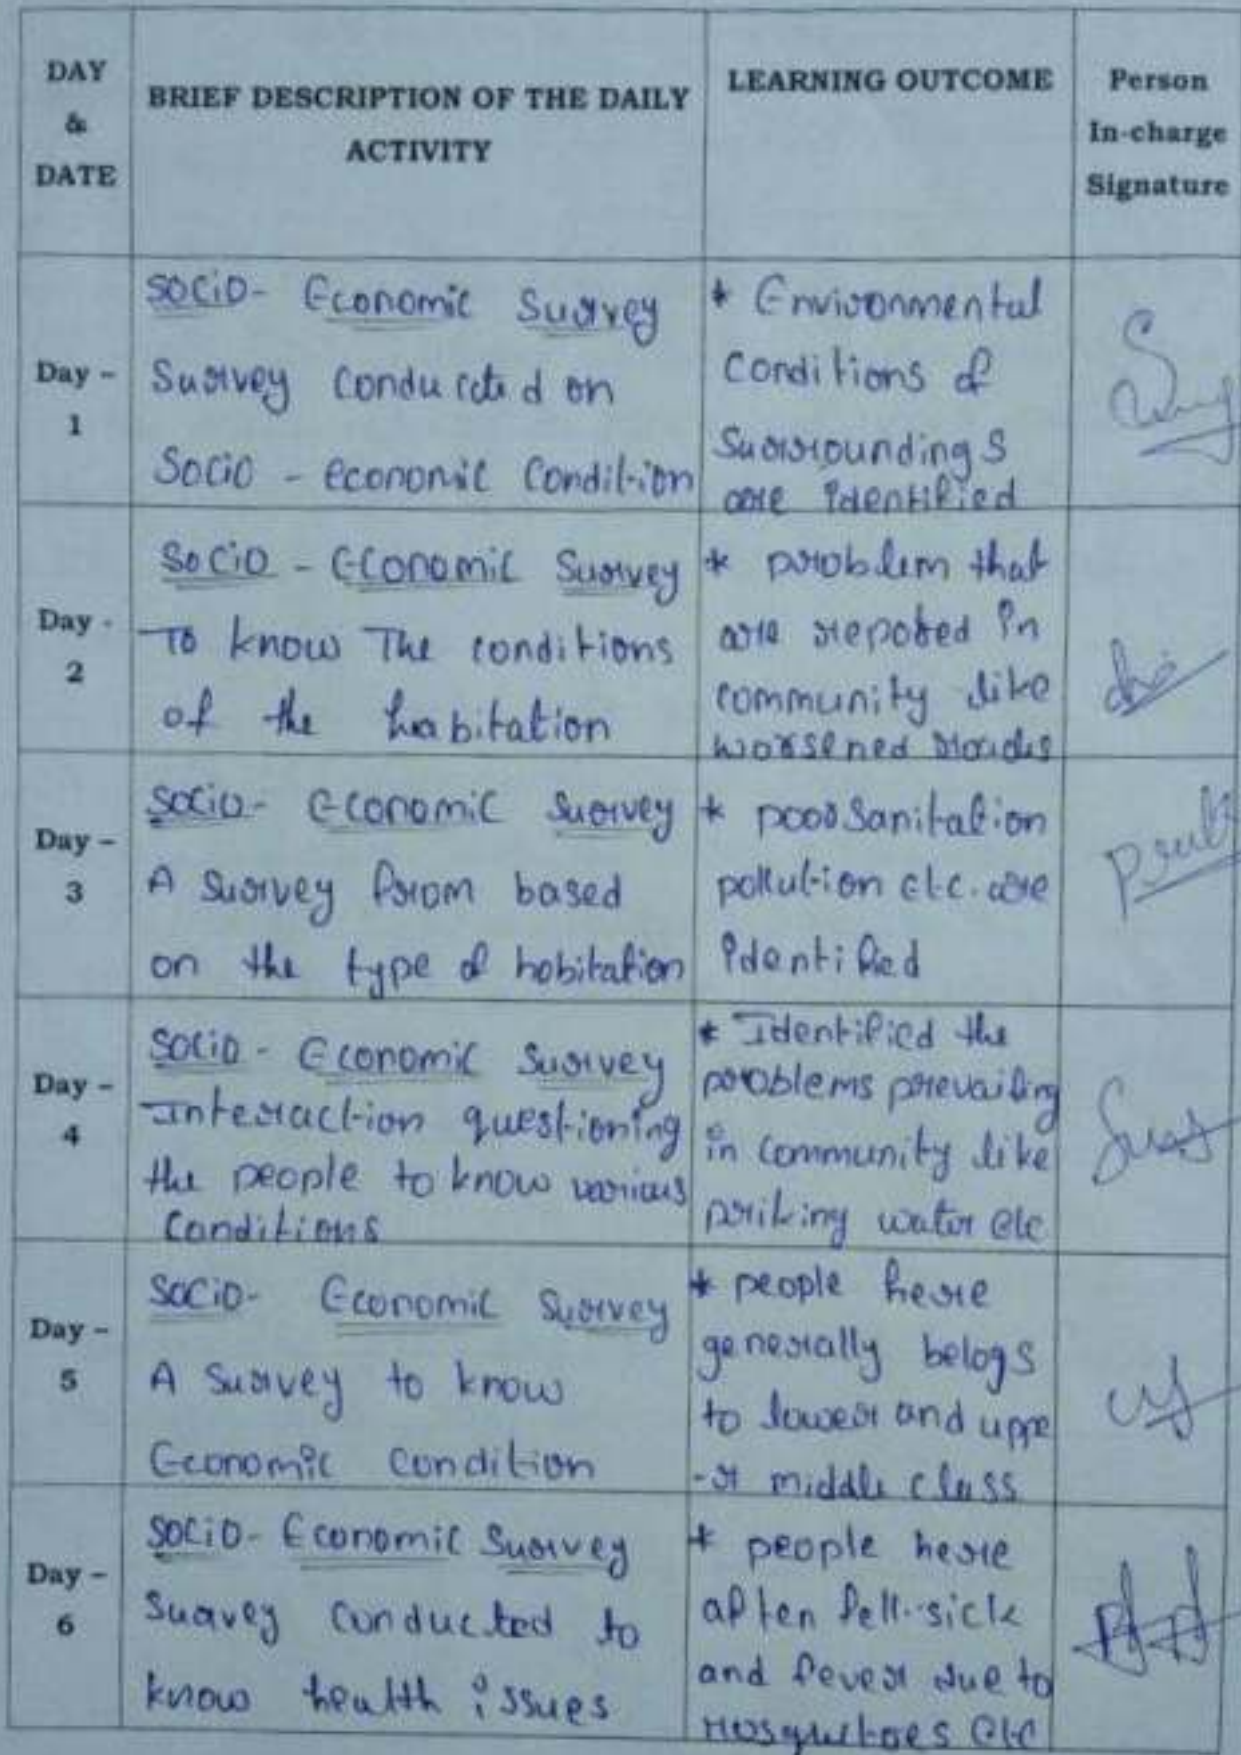 DAY
&
DATE
BRIEF DESCRIPTION OF THE DAILY
ACTIVITY
LEARNING OUTCOME
Person
In-charge
Signature
Day –
1
SOCIO- Economic Survey
Survey conducted on
Socio - economic Condition
* Environmental
conditions of
Surroundings
are identified
Day -
2
Socio - Economic Survey
To know The conditions
of the habitation
* problem that
are repoted in
community like
worsened roads
Day –
3
Socio- Economic Survey
A Survey from based
on the type of hobitation
* poor Sanitation
pollution etc. are
identified
Day –
4
Socio - Economic Survey
Interaction questioning
the people to know various
Conditions
* Identified the
problems prevailing
in community like
priking water etc
Day –
5
Socio- Economic Survey
A Survey to know
Economic condition
* people here
generally belogs
to lower and uppe
-r middle class
Day –
6
Socio- Economic Survey
Survey conducted to
know health issues
* people here
aften fell-sick
and fever due to
Mosquitoes etc